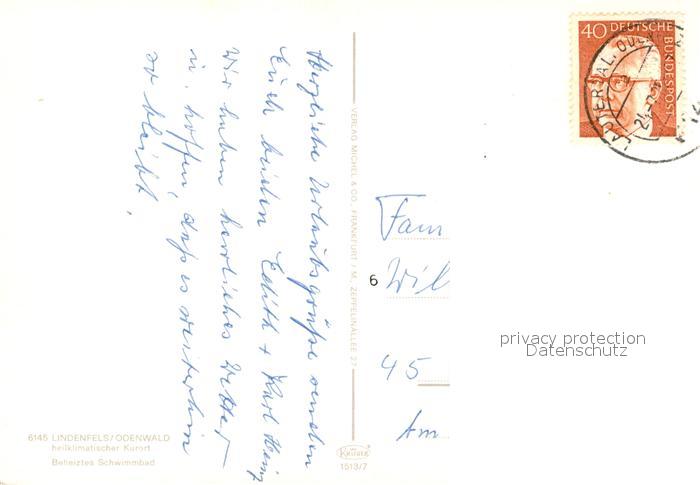 Herzliche Urlaubsgrüße senden
Euch beiden Edith + Karl Heinz
Wir haben herrliches Wetter
u. hoffen, daß es weiterhin
so bleibt.
40 DEUTSCHE
BUNDESPOST
VERLAG MICHEL & CO., FRANKFURT / M. ZEPPELINALLEE 27
Fam
6 Wil
45
Am
privacy protection
Datenschutz
6145 LINDENFELS/ODENWALD
heilklimatischer Kurort
Beheiztes Schwimmbad
KRÜGER
1513/7